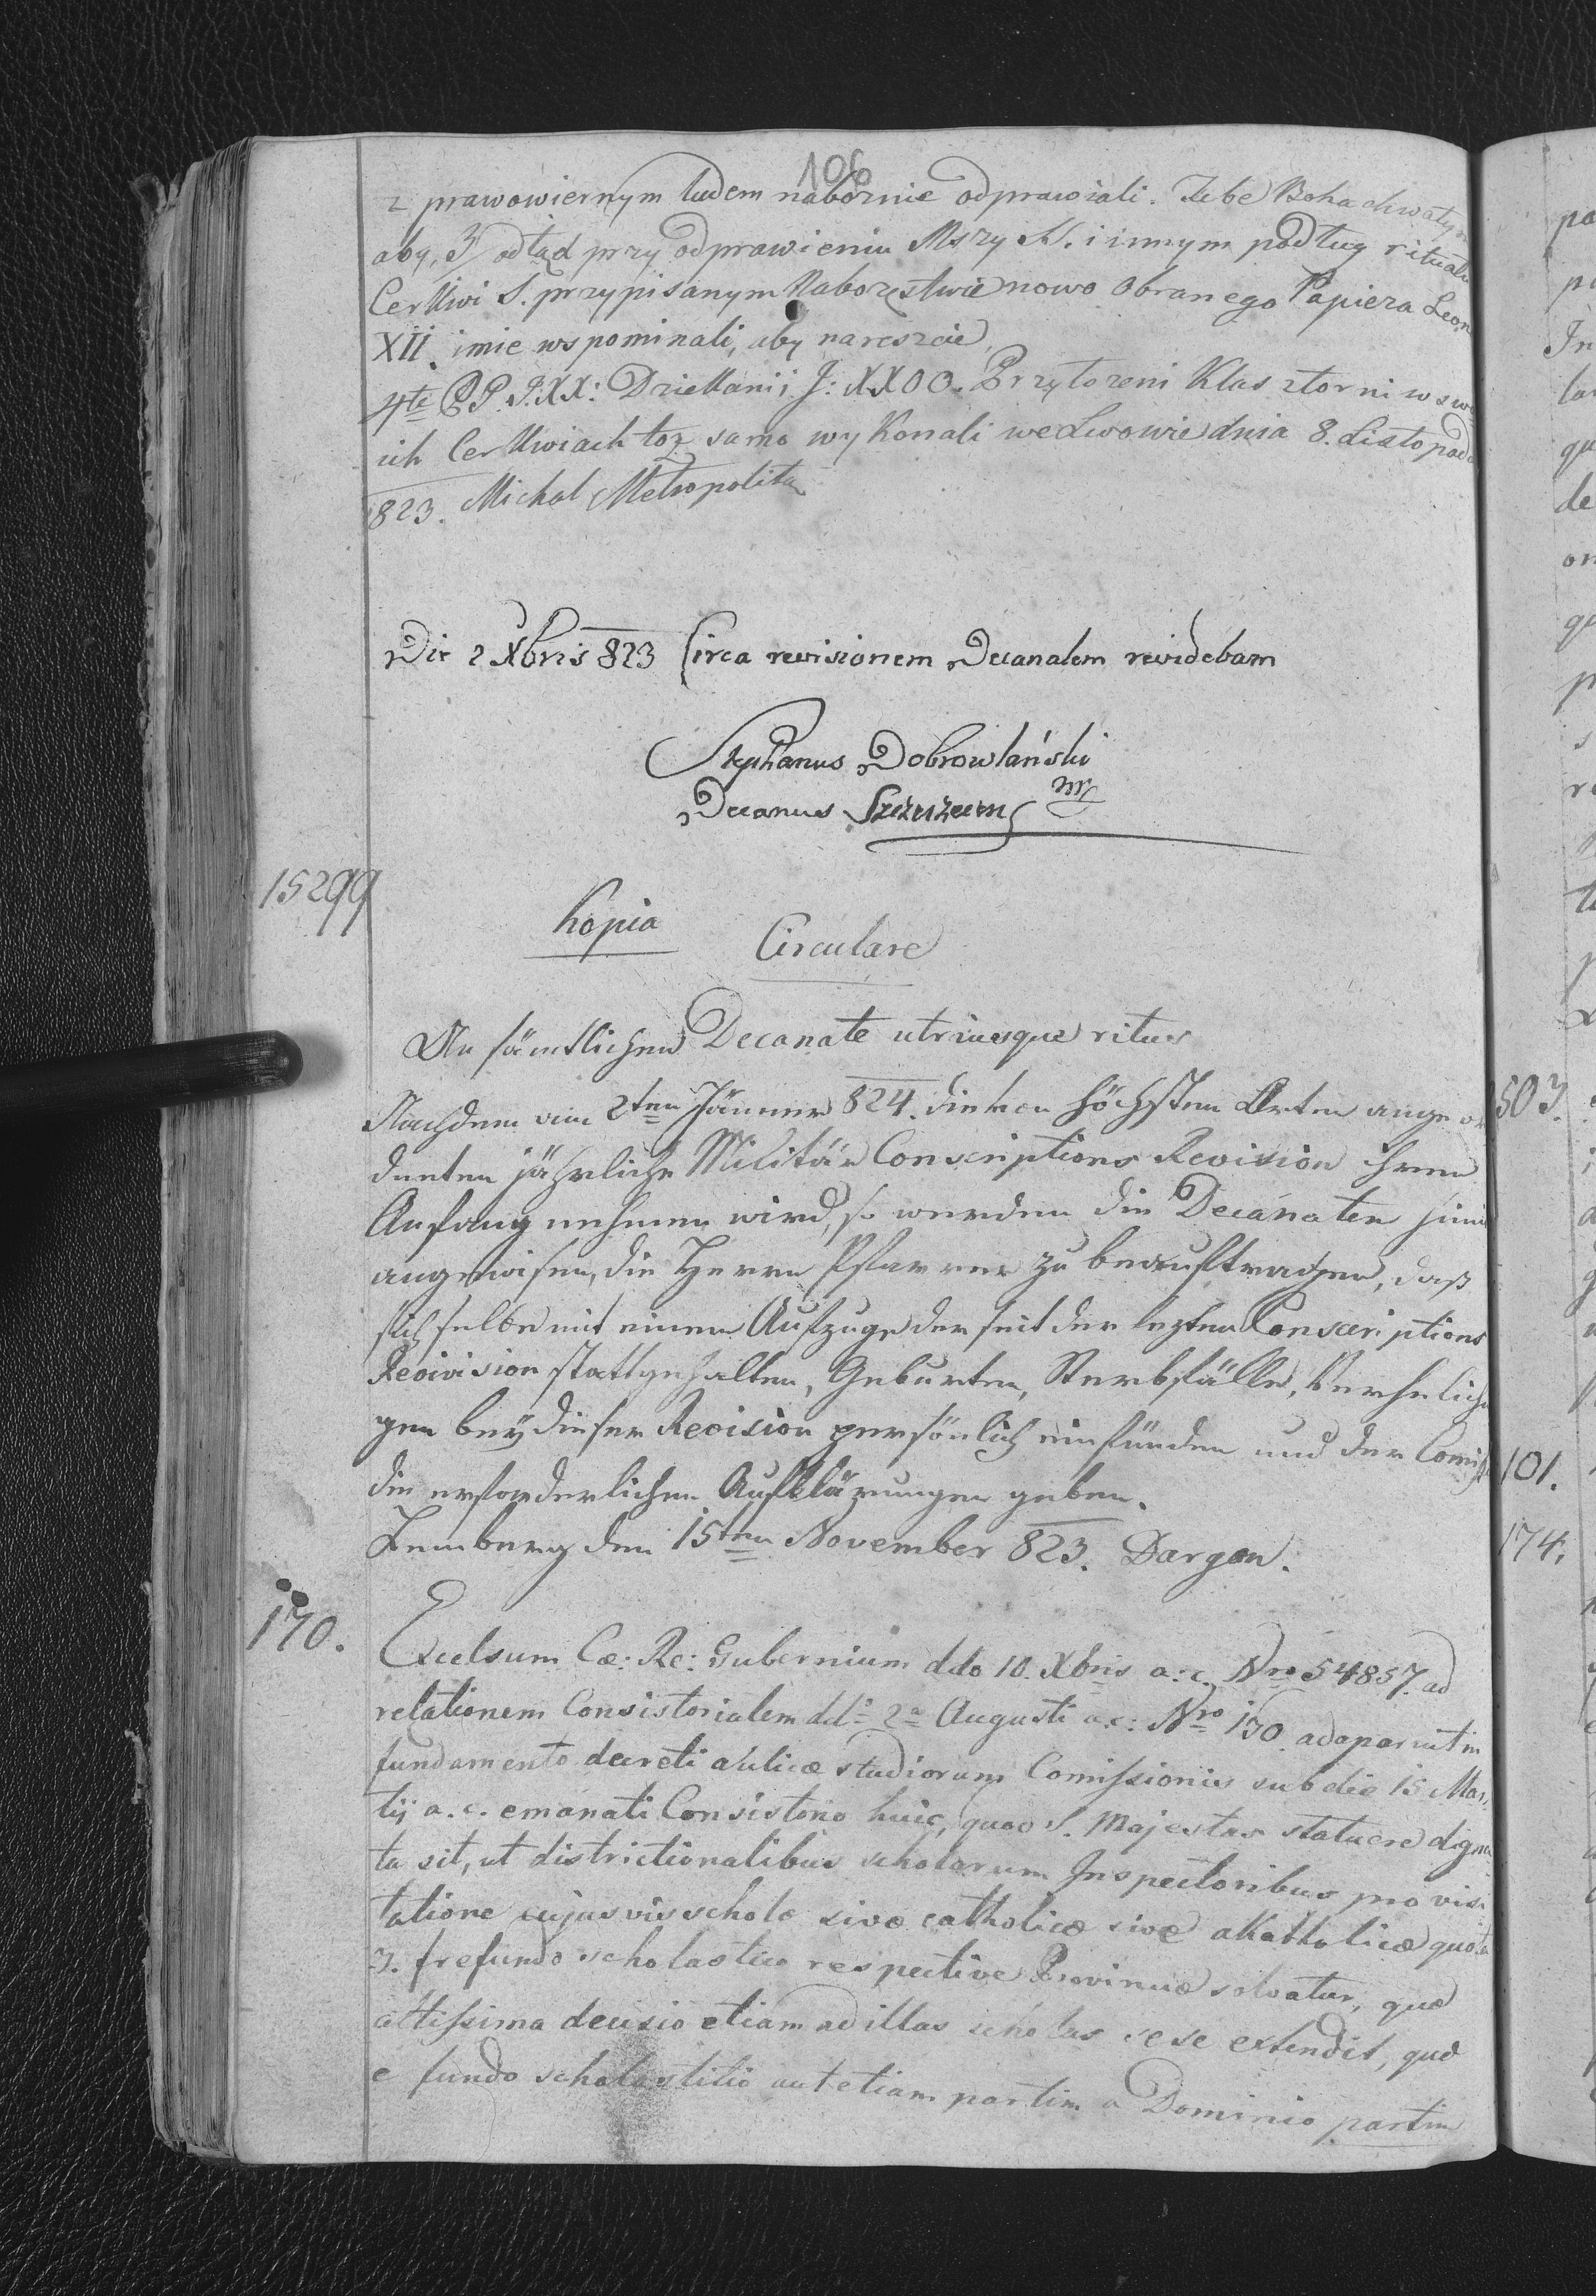 106
z prawowiernym ludem nabożnie odprawiali. Tebe Boha chwalym
aby, 3 odtąd przy odprawieniu Mszy S. i innym podług rituału
Cerkwi S. przypisanym Nabożęstwie nowo obranego Papieża Leon
XII imie wspominali, aby nareszcie,
4te PP. J.XX: Dziekanii J: XXOO. Przełożeni Klasztorni w swo
ich Cerkwiach toż samo wykonali we Lwowie dnia 8. Listopada
823. Michal Metropolita
Die 2 Xbris 823 Circa revisionem Decanalem revidebam
Stephanus Dobrowlański
Decanus Szczerzecen mp
15299
Kopia
Circulare
An sämtlichen Decanate utriusque ritus
Nachdem am 2ten Jänner 824. die von höchsten Orten angeor
dneten jährliche Militär Conscriptions Revision ihren
Anfang nehmen wird, so werden die Decanaten hiemit
angewisen, die Herrn Pfarrer zu beauftragen, daß
sich selbe mit einem Auszuge der seit der lezten Conscriptions
Revivision stattgehalten, Geburten, Sterbfälle, Verehelichu
gen bey dieser Revision persönlich einfünden und der Comiss
die erforderlichen Aufklärungen geben.
Lemberg den 15ten November 823. Dargon.
170.
Excelsum Cæ: Re: Gubernium ddo 10. Xbris a: c. Nro 54857. ad
relationem Consistorialem ddo 2a Augusti a.c: Nro 170 adaparuit in
fundamento decreti aulicæ studiorum Comissionis sub die 15 Mar,
tij a. c. emanati Consistorio huic, quod S. Majestas statuere digna
ta sit, ut districtionalibus scholarum Inspectoribus pro visi
tatione cujusvis schole sive catholicæ sive akatholicæ quota
3. fr e fundo scholastico respective Provinciæ solvatur, quæ
altissima decisio etiam ad illas scholas sese extendit, quæ
e fundo scholastitio aut etiam partim a Dominio partim
503.
101.
174.